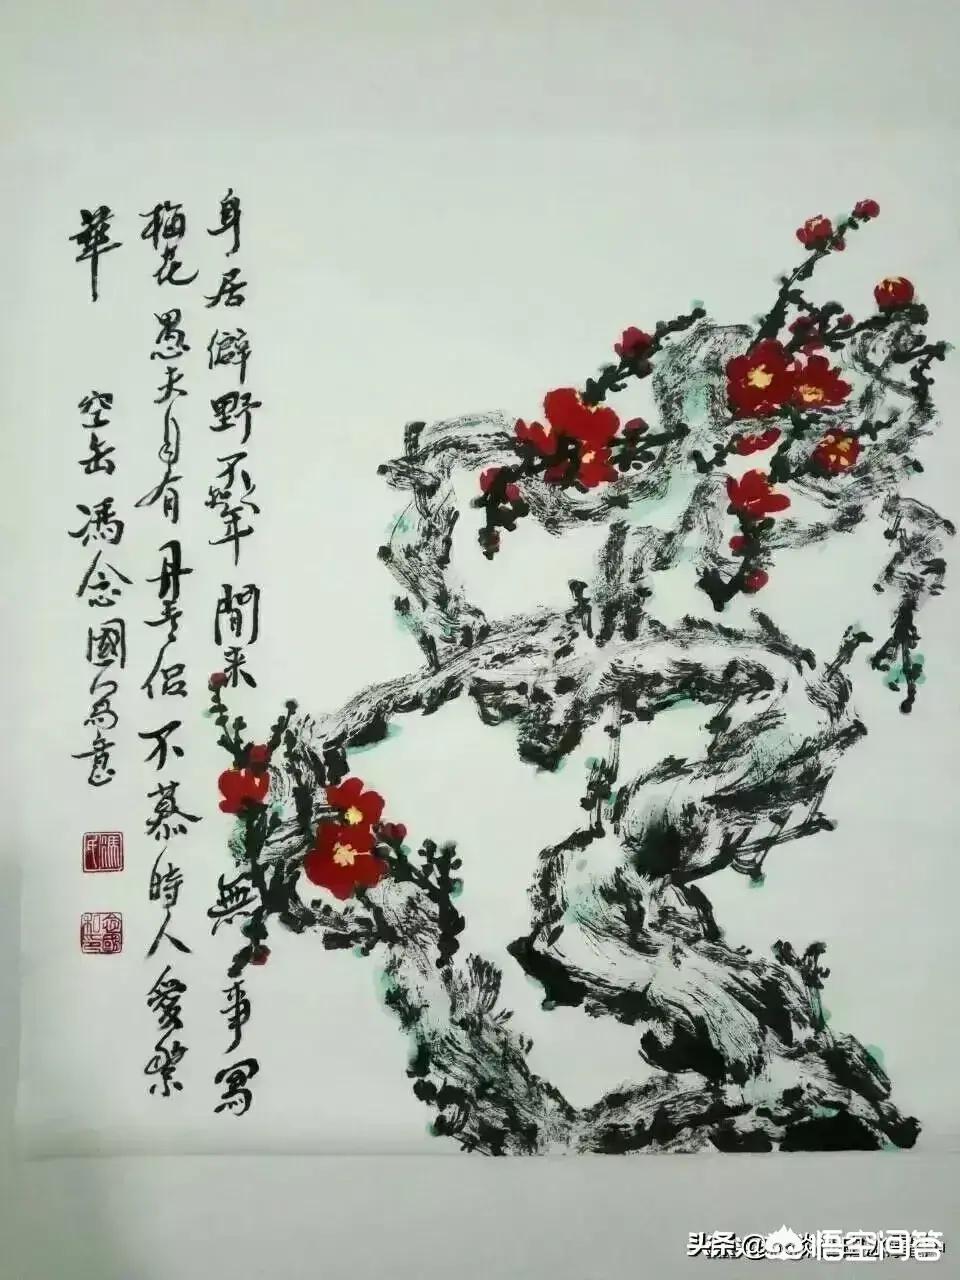 身居僻野不年閒来無事寫
梅花愚夫自有丹青侣不慕時人愛繁
華 空馮念國寫意
馮氏
念國私印
头条 @
悟空问答